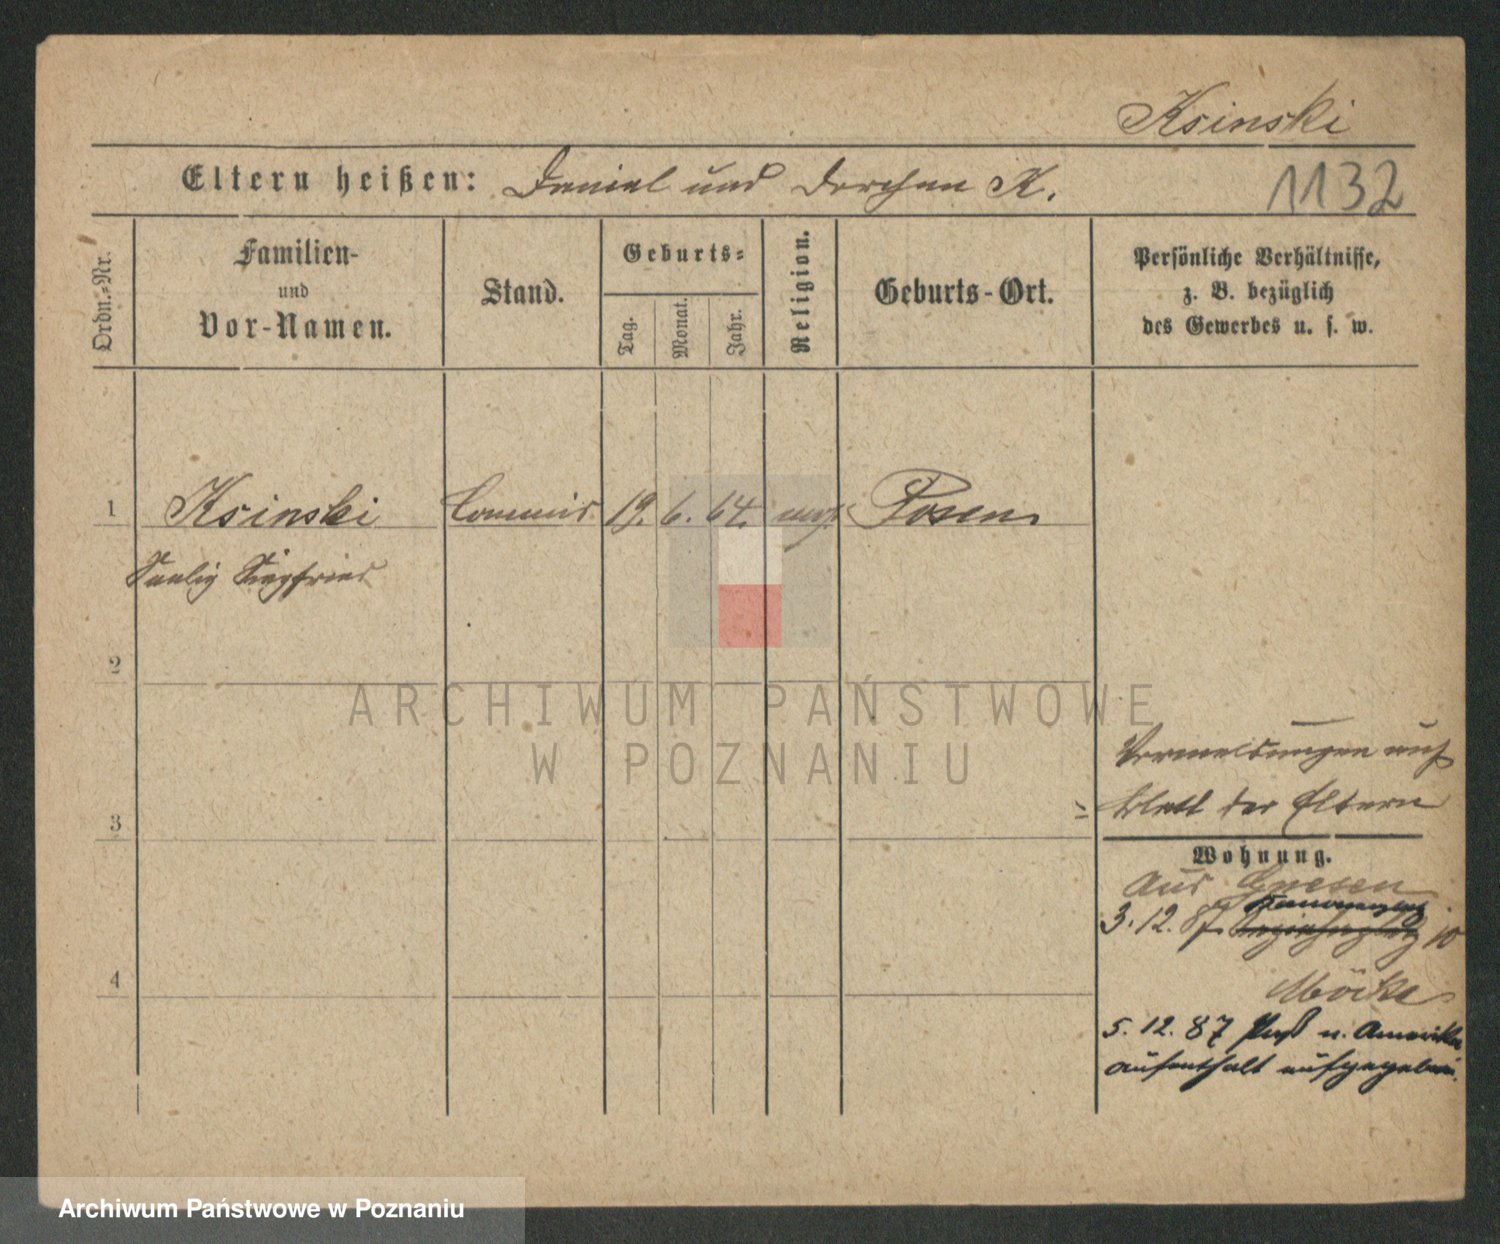 Ksinski
Eltern heißen: Daniel und Dorchen K.
1132
Ordn.-Nr.
Familien-
und
Vor-Namen.
Stand.
Geburts-
Tag.
Monat.
Jahr.
Religion.
Geburts-Ort.
Persönliche Verhältnisse,
z. B. bezüglich
des Gewerbes u. s. w.
1 Ksinski Commis 19. 6. 64. Posen
Saalig Siegfried
2
ARCHIWUM PAŃSTWOWE
W POZNANIU
Vormeldungen auf
3 Blatt der Eltern
Wohnung.
aus Gnesen
3. 12. 87 10
4 Möcke
5. 12. 87 Paß n. Amerika
aufenthalt aufgegeben.
Archiwum Państwowe w Poznaniu